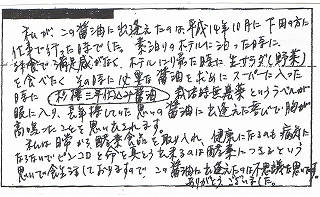 私が、この醤油に出逢えたのは平成14年10月に下田の方に
仕事で行った時でした。素泊りのホテルに泊った時に
外食で満足感がなく、ホテルに帰た時に生サラダ(野菜)
を食べたく、その時に必要な醤油を求めにスーパーに入った
時に 杉樽三年仕込み醤油 栽培時無農薬というラベルが
眼に入り、長年捜していた思いの醤油に出逢えた喜びで胸が
高鳴ったことを思い出されます。
私は日常から酵素食品を取り入れ、健康になるのも病気に
ならないでピンコロと命を真とう出来るのは酵素につきるという
思いで食生活しておりますので、この醤油に出逢えたのは不思議な思いです。
ありがとうございました。